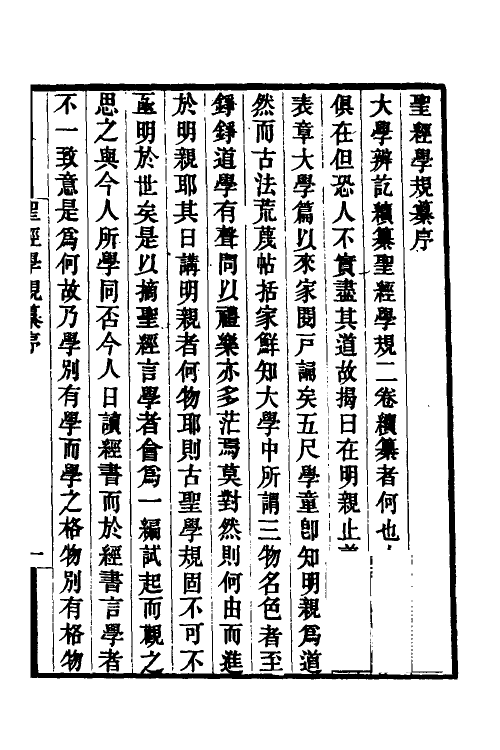 聖經學規纂序
大學辨訖續纂聖經學規二卷續纂者何也
俱在但恐人不實盡其道故揭曰在明親止善
表章大學篇以來家閱戸誦矣五尺學童卽知明親爲道
然而古法荒蔑帖括家鮮知大學中所謂三物名色者至
錚錚道學有聲問以禮樂亦多茫焉莫對然則何由而進
於明親耶其日講明親者何物耶則古聖學規固不可不
亟明於世矣是以摘聖經言學者會爲一編試起而觀之
思之與今人所學同否今人日讀經書而於經書言學者
不一致意是爲何故乃學別有學而學之格物別有格物
聖經學規纂序
一